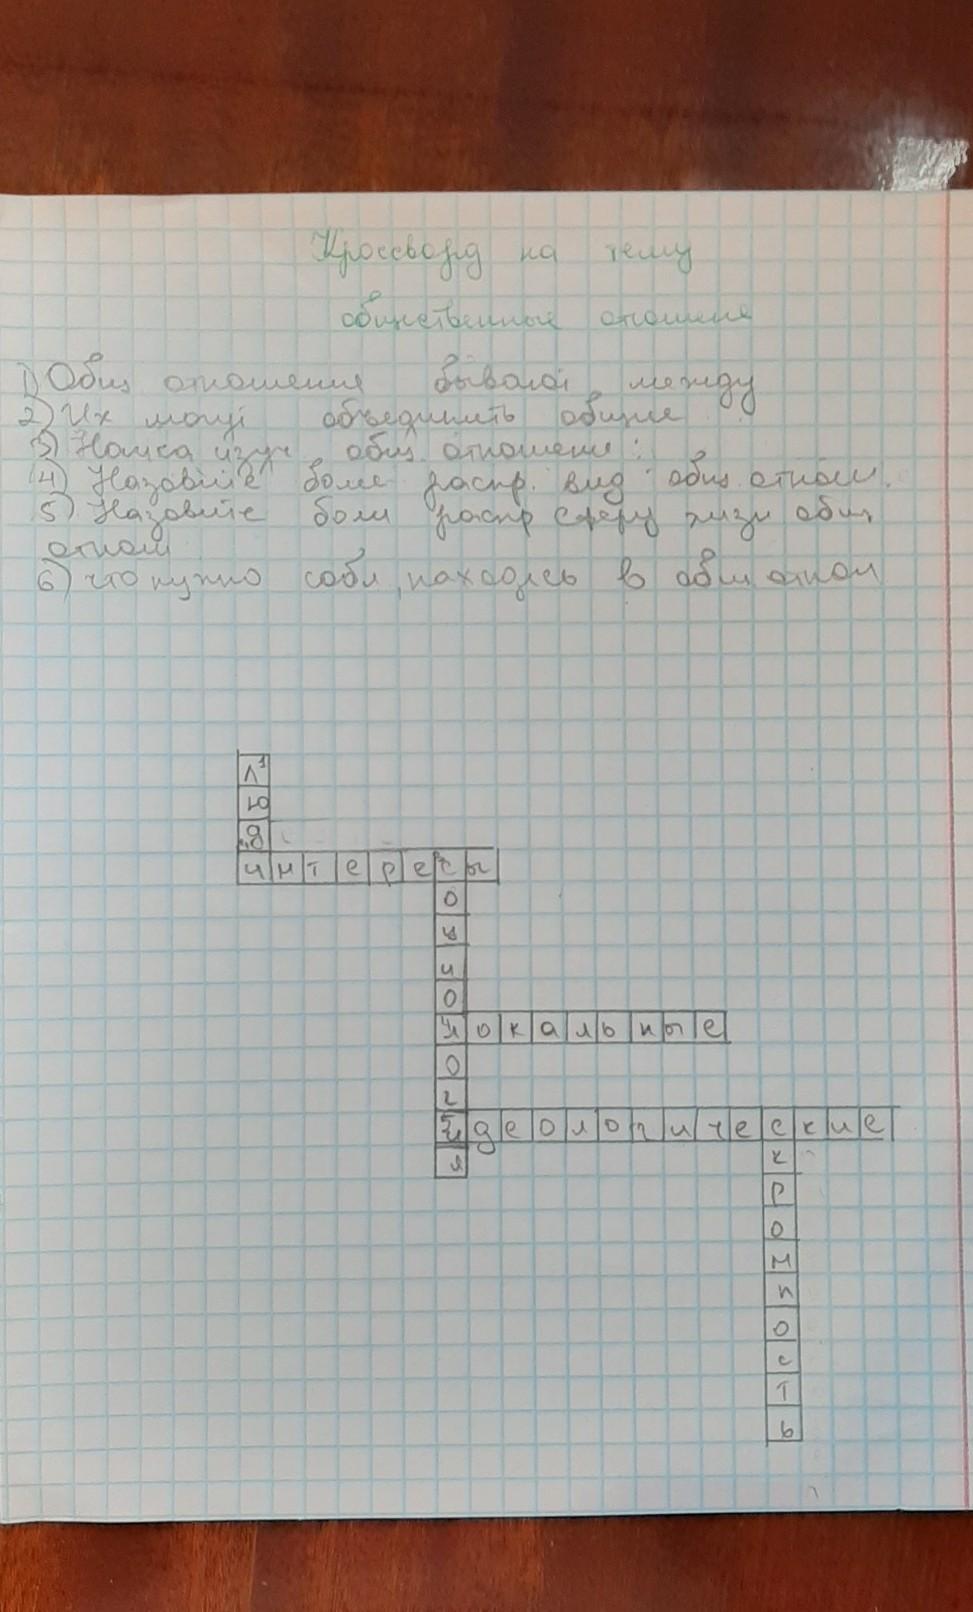 Кроссворд на тему
общественные отношене
1) Общ отношения бывают между
2) Их могут объединить общие
3) Наука изуч общ. отношени:
4) Назовите боле распр. вид общ. отнош.
5) Назовите боли распр сферу жизн общ
отнош
6) что нужно собл, находясь в общ отнош
л1
ю
д
интересы
о
ц
и
о
локальные
о
г
идеологические
я
к
р
о
м
н
о
с
т
ь